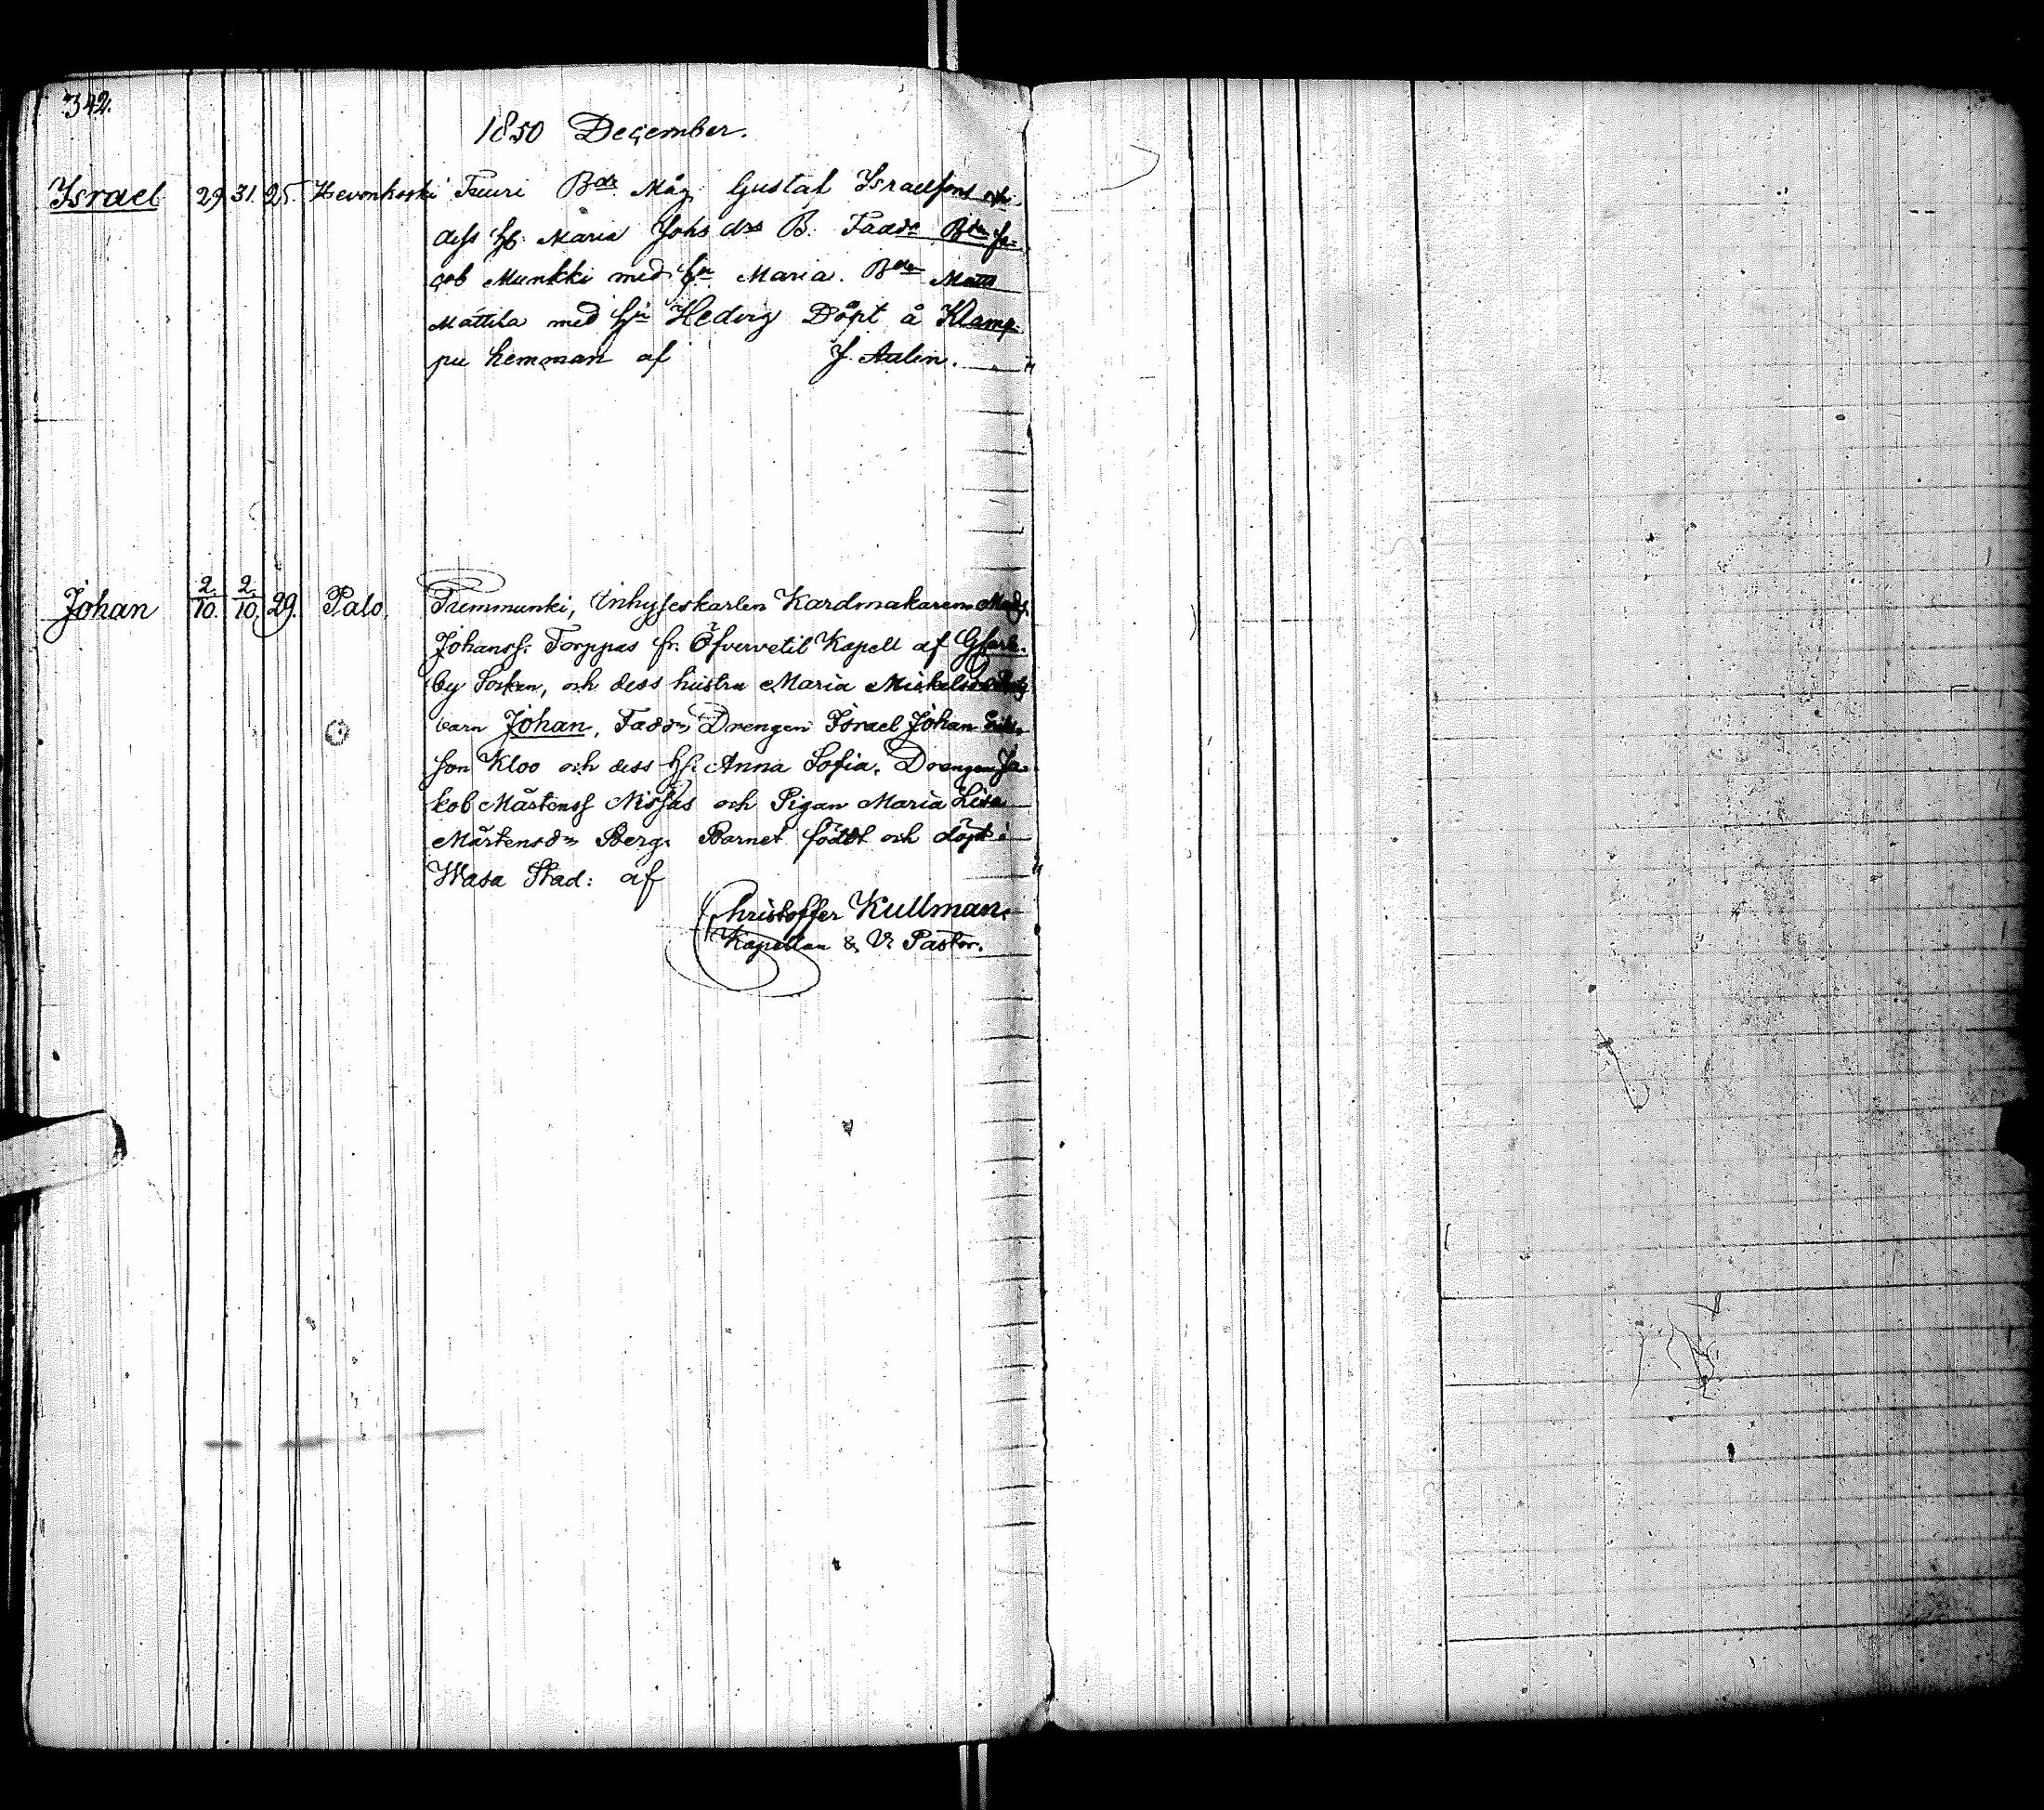 342.
1850 December.
Israel 29. 31. 25. Hevonkoski Tuuri Bdr Måg Gustaf Israelsons och
dess h. Maria Johs drs B. Faddr Bdn Ja-
cob Munkki med hu Maria. Bdn Matts
Mattila med hu Hedvig Döpt å Klamp-
pu hemman af J. Aalin.
Johan 2/10. 2/10. 29. Palo. Inhyseskarlen Kardmakaren
Johanss. Torppas fr. Öfvervetil Kapell af
by Socken, och dess hustru Maria
barn Johan, Faddr Drengen Israel Johan
son Kloo och dess h. Anna Sofia. Drengen Ja-
kob Mårtenss Nissas och Pigan Maria Lisa
Mårtensdr Berg. Barnet födt och döpt i
Wasa Stad: af
Christoffer Kullman.
Kapellan & V. Pastor.